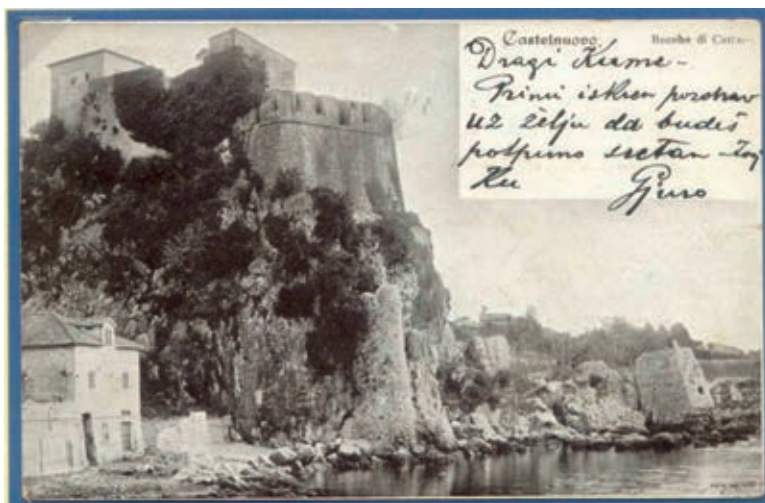 Castelnuovo Bocche di
Dragi Kume -
Primi iskren pozdrav
uz želju da budeš
potpuno sretan -
Gjuro